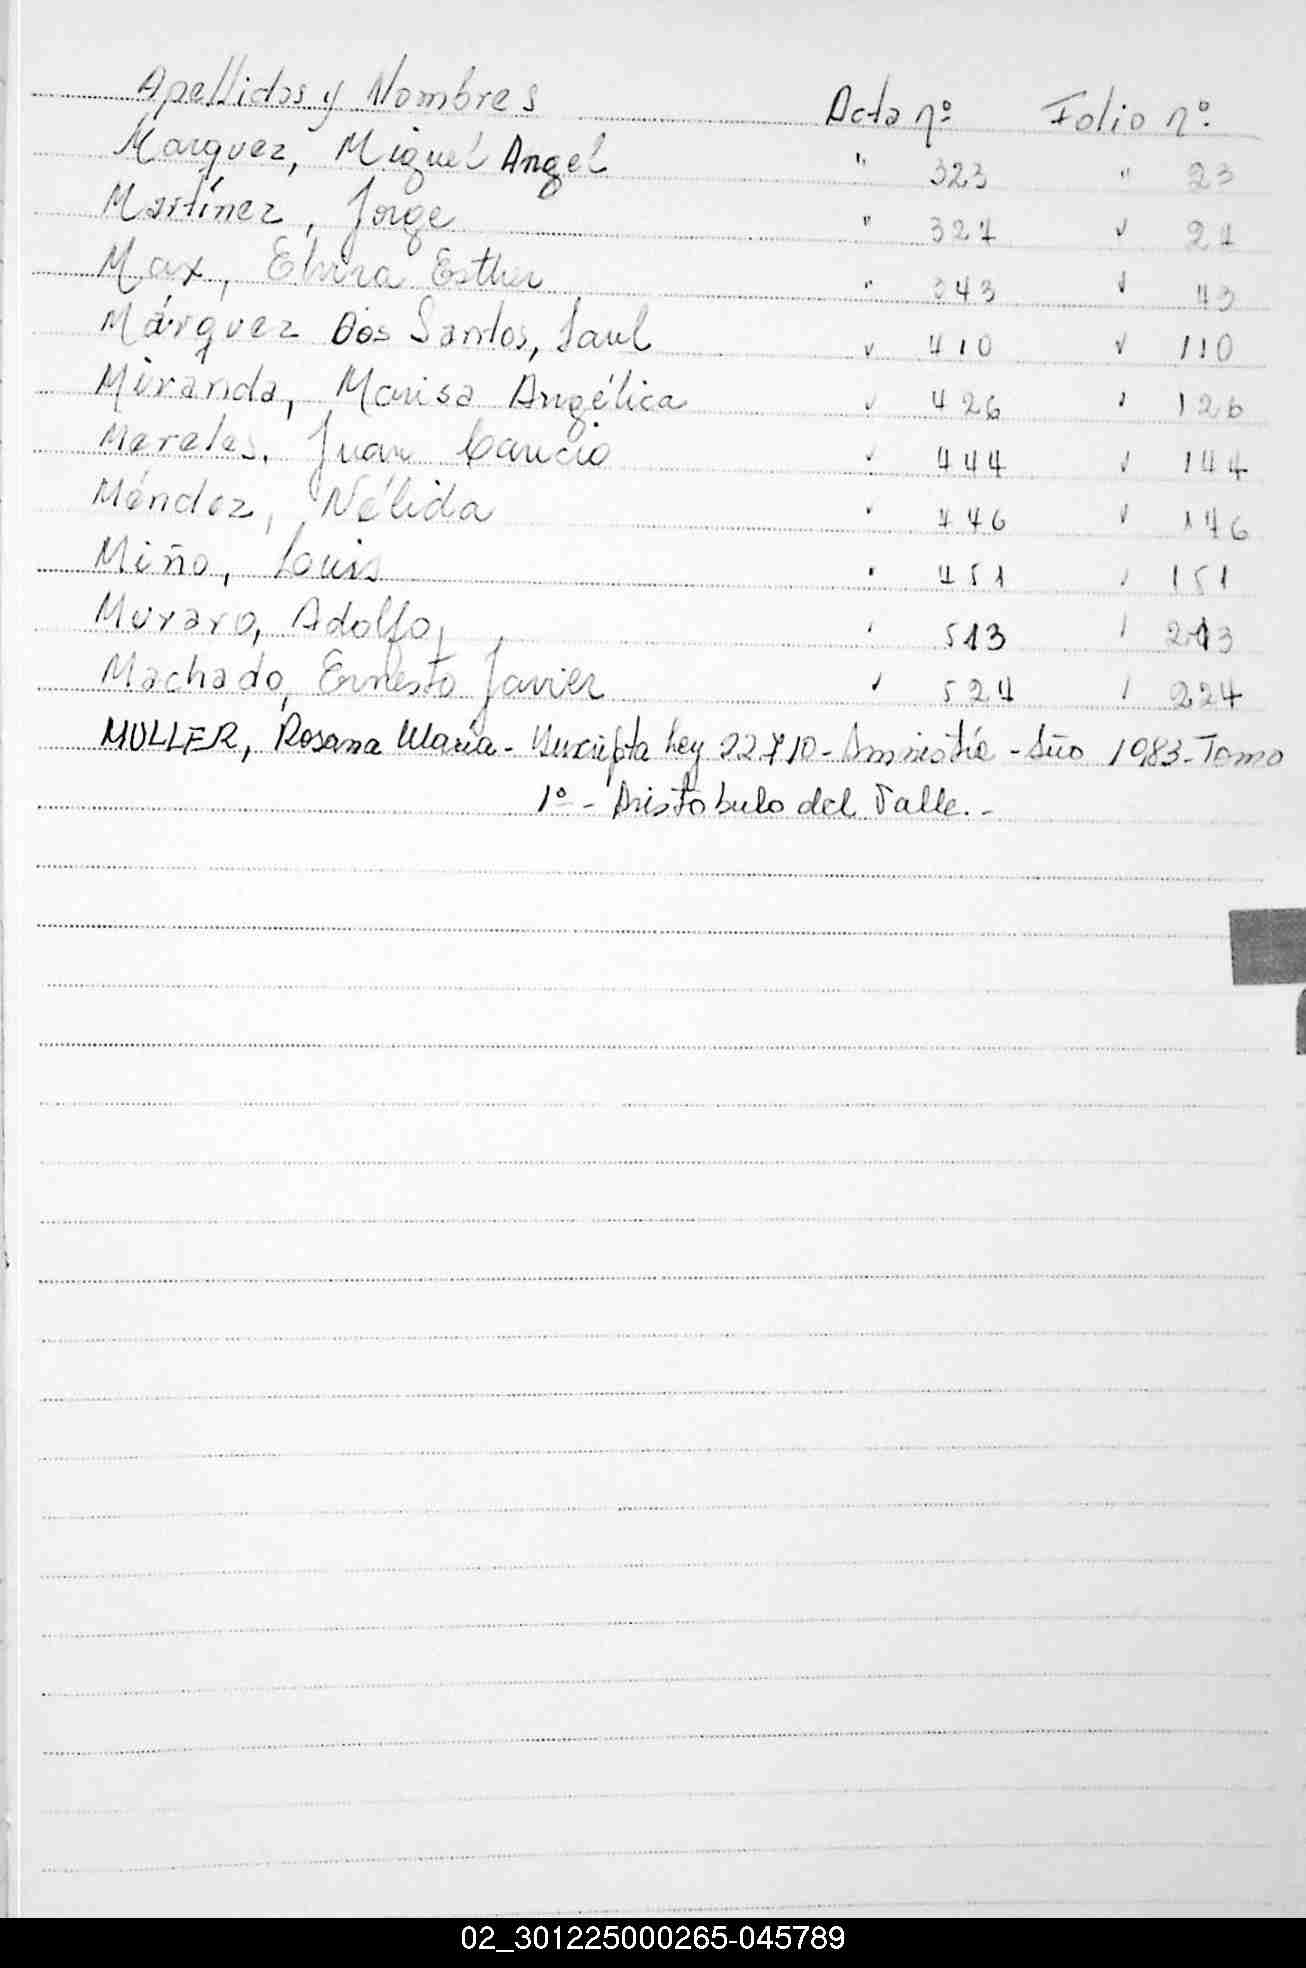 Apellidos y Nombres Acta nº Folio nº
Marquez, Miguel Angel " 323 " 23
Martínez, Jorge " 324 " 24
Max, Elvira Esther " 343 " 43
Márquez Dos Santos, Saul " 410 " 110
Miranda, Marisa Angélica " 426 " 126
Mereles, Juan " 444 " 144
Méndez, Nélida " 446 " 146
Miño, Louis " 451 " 151
Muraro, Adolfo, " 513 " 213
Machado, Ernesto Javier " 524 " 224
MULLER, Rosana María - Inscripta Ley 22710 - Amnistía - Año 1983 - Tomo
1º - Aristobulo del Valle. -
02_301225000265-045789